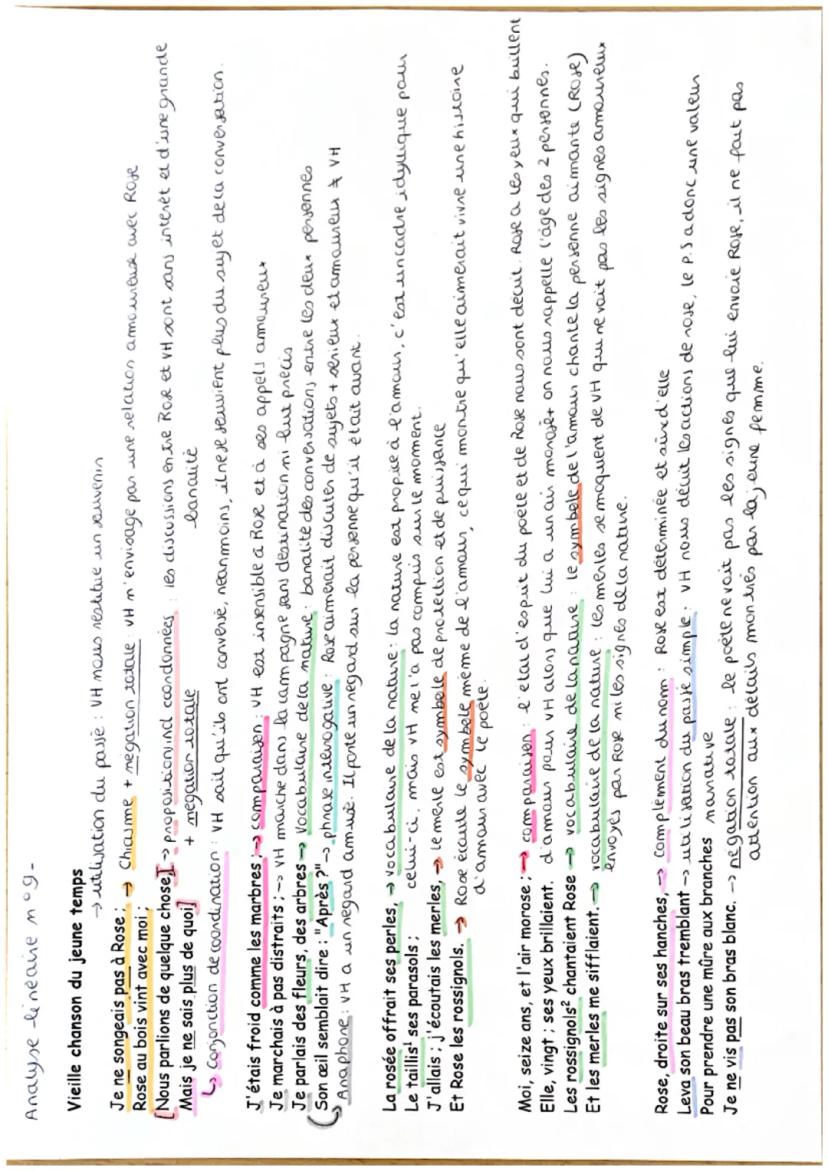 Analyse linéaire n°9-
Vieille chanson du jeune temps
→ utilisation du passé : VH nous restitue un souvenir
Je ne songeais pas à Rose ; → Chiasme + négation totale : VH n'envisage pas une relation amoureuse avec Rose
Rose au bois vint avec moi ;
[Nous parlions de quelque chose,] → proposition ind coordonnées : les discussions entre Rose et VH sont sans intérêt et d'une grande
Mais je ne sais plus de quoi] + négation totale banalité
↳ Conjonction de coordination : VH sait qu'ils ont conversé, néanmoins, il ne se souvient plus du sujet de la conversation.
J'étais froid comme les marbres ; → comparaison : VH est insensible à Rose et à ses appels amoureux
Je marchais à pas distraits ; → VH marche dans la campagne sans destination ni but précis
Je parlais des fleurs, des arbres → vocabulaire de la nature : banalité des conversations entre les deux personnes
Son œil semblait dire : "Après ?" → phrase interrogative : Rose aimerait discuter de sujets + sérieux et amoureux ≠ VH
Anaphore : VH a un regard amusé. Il porte un regard sur la personne qu'il était avant.
La rosée offrait ses perles, → vocabulaire de la nature : la nature est propice à l'amour, c'est un cadre idyllique pour
Le taillis¹ ses parasols ; celui-ci, mais VH ne l'a pas compris sur le moment.
J'allais ; j'écoutais les merles, → le merle est symbole de protection et de puissance
Et Rose les rossignols. → Rose écoute le symbole même de l'amour, ce qui montre qu'elle aimerait vivre une histoire
d'amour avec le poète.
Moi, seize ans, et l'air morose ; → comparaison : l'état d'esprit du poète et de Rose nous sont décrit. Rose a les yeux qui brillent
Elle, vingt ; ses yeux brillaient. d'amour pour VH alors que lui a un air morose + on nous rappelle l'âge des 2 personnes.
Les rossignols² chantaient Rose → vocabulaire de la nature : le symbole de l'amour chante la personne aimante (Rose)
Et les merles me sifflaient. → vocabulaire de la nature : les merles se moquent de VH qui ne voit pas les signes amoureux
envoyés par Rose ni les signes de la nature.
Rose, droite sur ses hanches, → complément du nom : Rose est déterminée et sûre d'elle
Leva son beau bras tremblant → utilisation du passé simple : VH nous décrit les actions de rose, le P.S a donc une valeur
Pour prendre une mûre aux branches narrative
Je ne vis pas son bras blanc. → négation totale : le poète ne voit pas les signes que lui envoie Rose, il ne fait pas
attention aux détails montrés par la jeune femme.